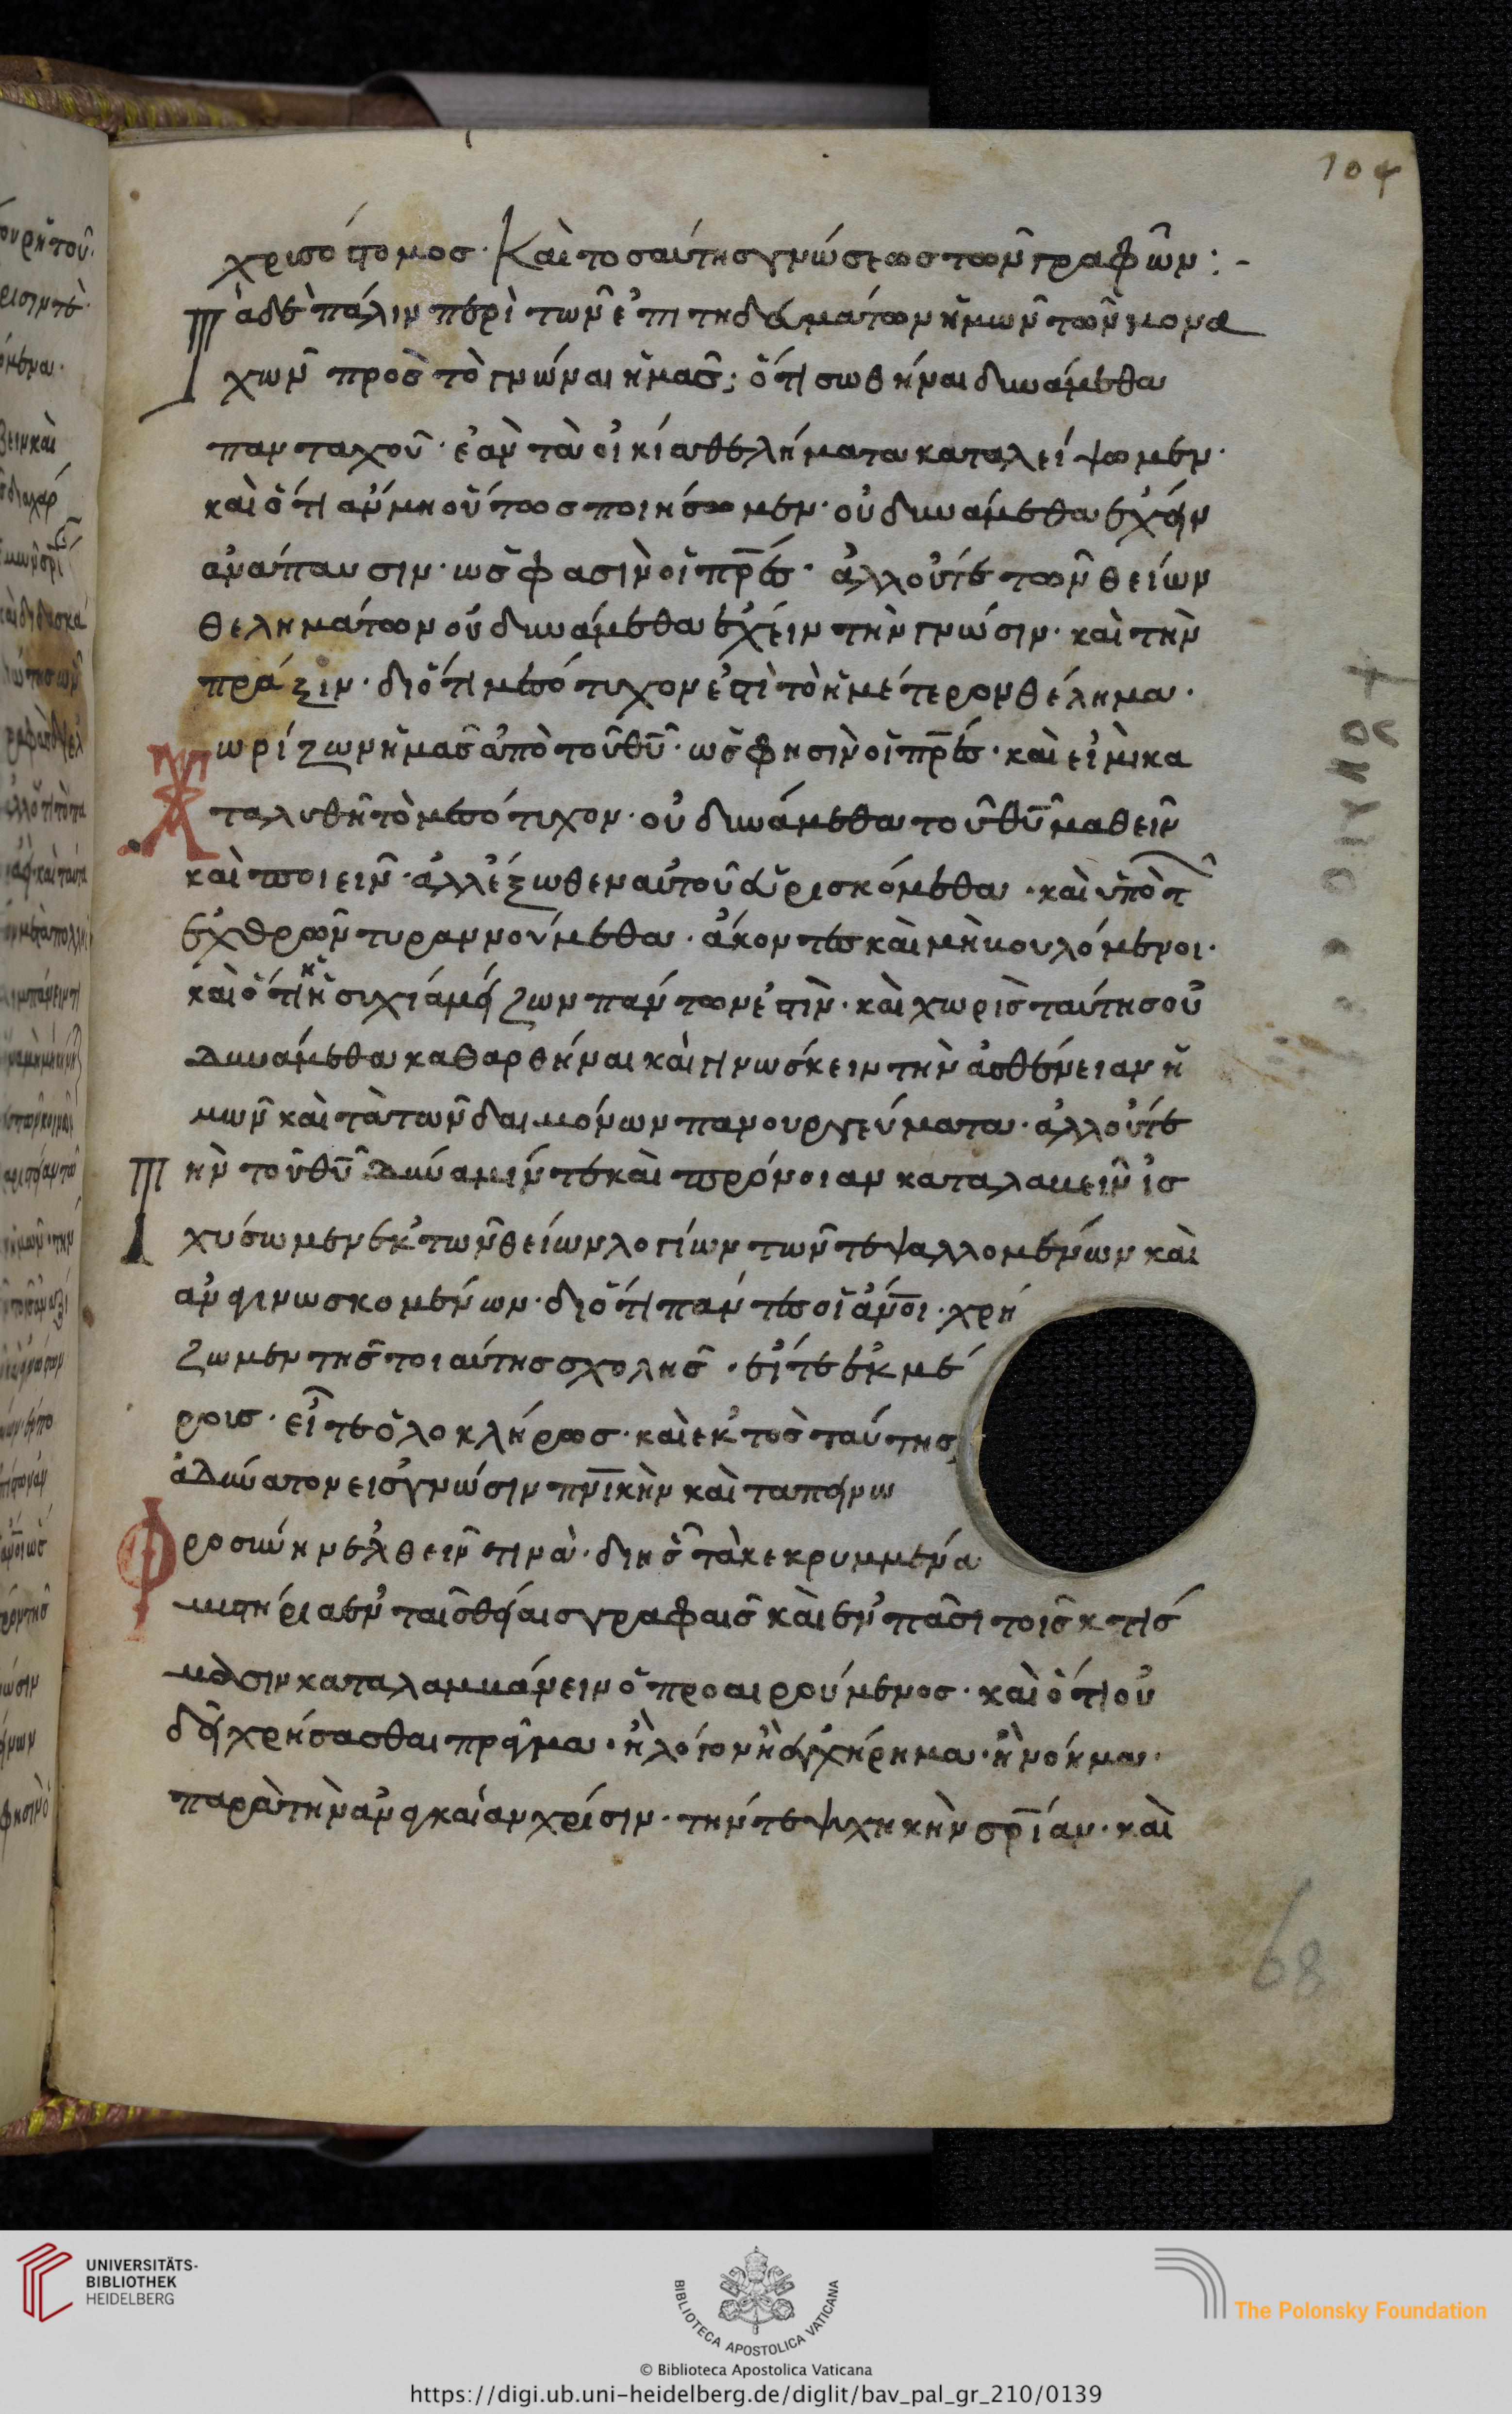 104
χρισόστομος· Καὶ τοσαύτης γνώσεως τῶν γραφῶν :-
Τὰ δὲ πάλιν περὶ τῶν ἐπιτηδευμάτων ἡμῶν τῶν μονα
χῶν πρὸς τὸ γνῶναι ἡμᾶς· ὅτι σωθῆναι δυνάμεθα
πανταχοῦ· ἐὰν τὰ οἰκία θελήματα καταλείψωμεν·
καὶ ὅτι ἂν μὴ οὕτως ποιήσωμεν· οὐ δυνάμεθα ἔχειν
ἀνάπαυσιν· ὡς φασὶν οἱ πρες· ἀλλ οὔτε τῶν θείων
θελημάτων οὐ δυνάμεθα ἔχειν τὴν γνῶσιν· καὶ τὴν
πράξιν· διότι μεσότυχον ἐστὶ τὸ ἡμέτερον θέλημα·
Χωρίζων ἡμᾶς ἀπὸ τοῦ θυ· ὡς φησὶν οἱ πρες· καὶ εἰ μὶ κα
ταλυθῆ τὸ μεσότυχον· οὐ δυνάμεθα τοῦ θυ μαθεῖν
καὶ ποιεῖν· ἀλλ ἔξωθεν αὐτοῦ εὑρισκόμεθα· καὶ ὑπὸ τ
ἐχθρῶν τυραννούμεθα· ἄκοντες καὶ μὴ βουλόμενοι·
καὶ ὅτι ἡ ἡσυχία μείζων πάντων ἐστὶν· καὶ χωρὶς ταύτης οὐ
δυνάμεθα καθαρθῆναι καὶ γινώσκειν τὴν ἀσθένειαν ἡ
μῶν καὶ τὰ τῶν δαιμόνων πανουργεύματα· ἀλλ οὔτε
Τὴν τοῦ θυ δύναμίν τε καὶ πρόνοιαν καταλαβεῖν ἰσ
χύσωμεν ἐκ τῶν θείων λογίων τῶν τε ψαλλομένων καὶ
ἀναγινωσκομένων· διότι πάντες οἱ ἄνοι· χρή
ζωμεν τῆς τοιαύτης σχολῆς· εἴτε ἐκ μέ
ρους· εἴτε ὁλοκλήρως· καὶ ἐκτὸς ταύτης
ἀδύνατον εἰς γνῶσιν πνικὴν καὶ ταπεινω
Φροσύνην ἐλθεῖν τινὰ· δι ης τὰ κεκρυμμένα
μυστήρια ἐν ταῖς θείαις γραφαῖς καὶ ἐν πᾶσι τοῖς κτίσ
μασιν καταλαμβάνειν ὁ προαιρούμενος· καὶ ὅτι οὐ
δεῖ χρήσασθαι πρᾶγμα· ἢ λόγον ἢ ἐγχήρημα· ἢ νόημα·
παρὰ τὴν ἀναγκαίαν χρίσιν· τήν τε ψυχηκὴν σρίαν· καὶ
68
UNIVERSITÄTS-
BIBLIOTHEK
HEIDELBERG
BIBLIOTECA APOSTOLICA VATICANA
The Polonsky Foundation
© Biblioteca Apostolica Vaticana
https://digi.ub.uni-heidelberg.de/diglit/bav_pal_gr_210/0139